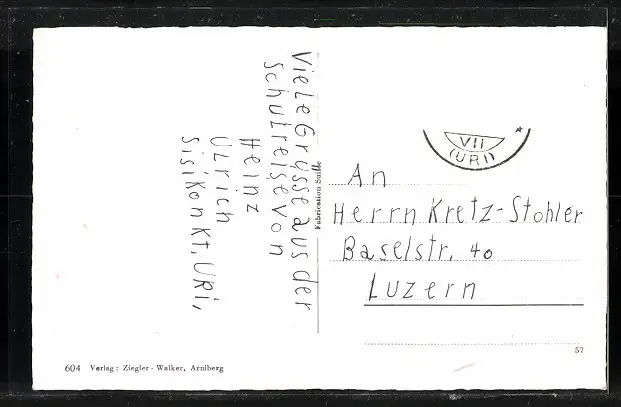 Viele Grüsse aus der
Schulreise von
Heinz
Ulrich
Sisikon Kt. URi,
Fabrication Suisse
VII
(URI)
An
Herrn Kretz-Stohler
Baselstr. 40
Luzern
57
604 Verlag: Ziegler-Walker, Arniberg